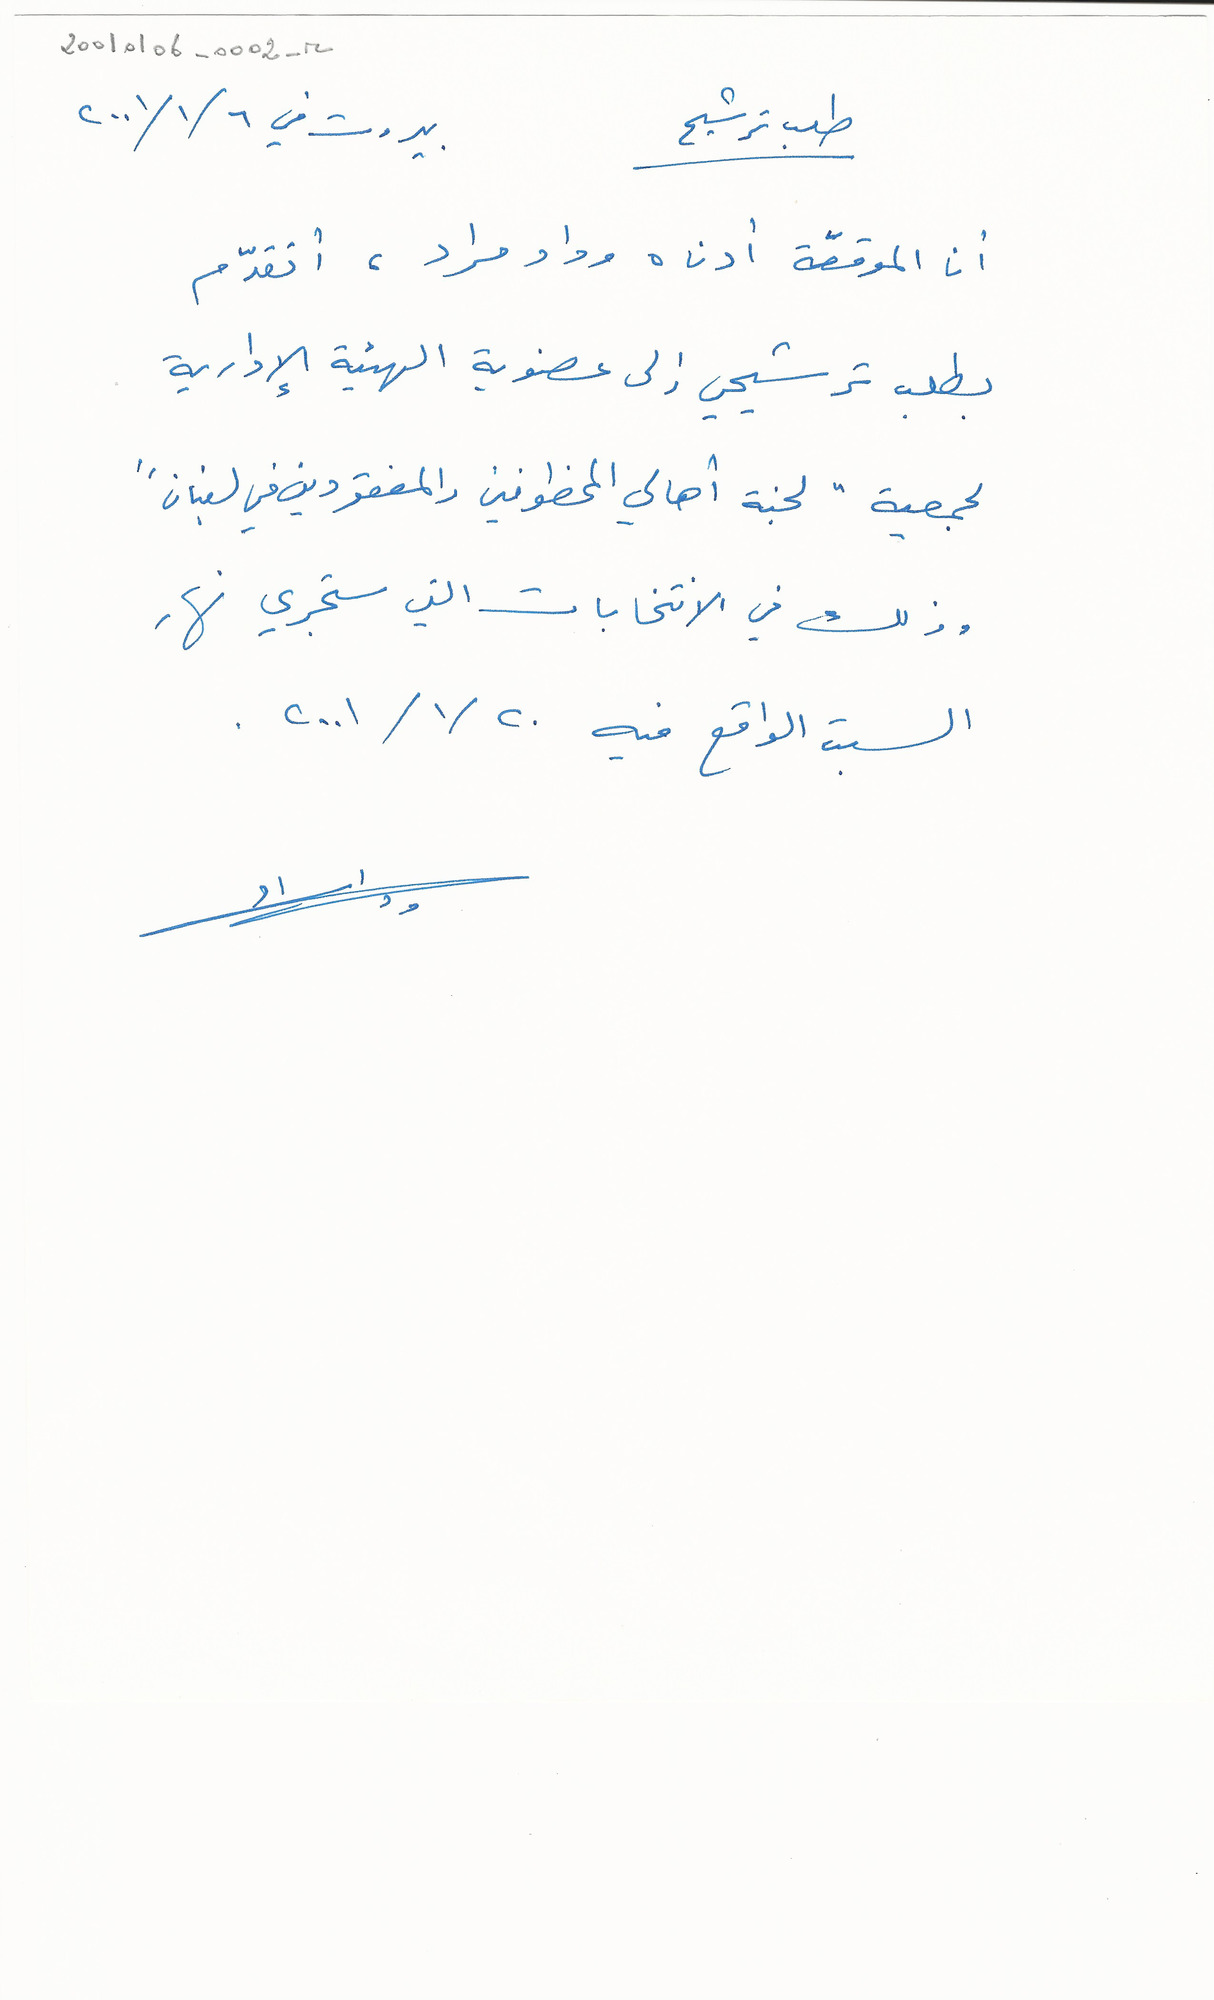 20010106_0002_r
طلب ترشيح
بيروت في ٢٠٠١/١/٦
أنا الموقعّة أدناه وداد مراد ، أتقدّم
بطلب ترشيحي إلى عضوية الهيئة الإدارية
لجمعية " لجنة أهالي المخطوفين والمفقودين في لبنان"
وذلك في الانتخابات التي ستجري نهار
السبت الواقع فيه ٢٠ /١ /٢٠٠١ .